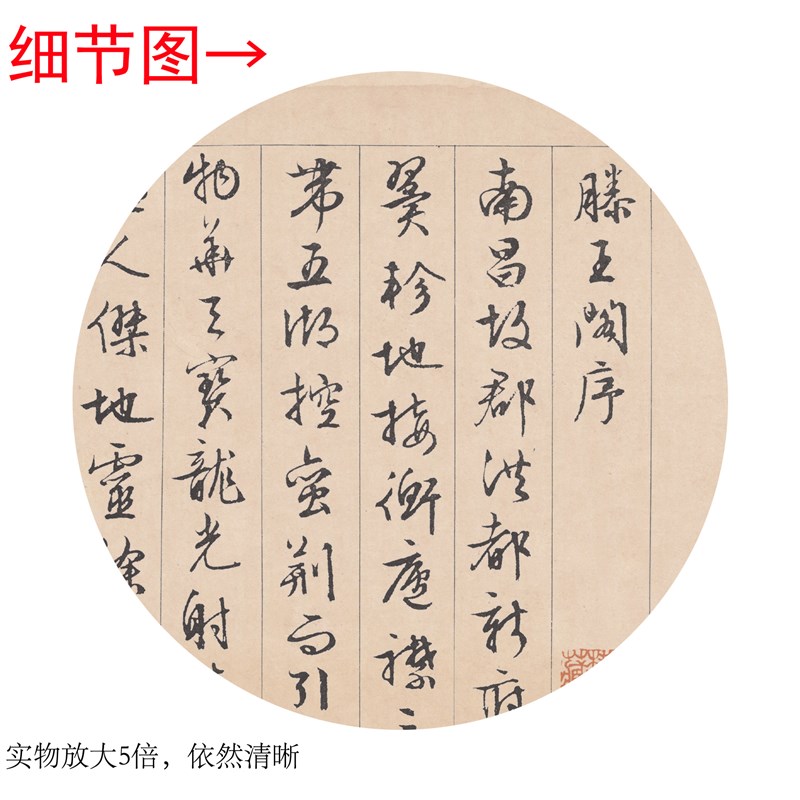 细节图→
滕王閣序
南昌故郡洪都新府
翼軫地接衡廬襟
帶五湖控蛮荊而引
物華天寶龍光射
人傑地靈徐
实物放大5倍，依然清晰